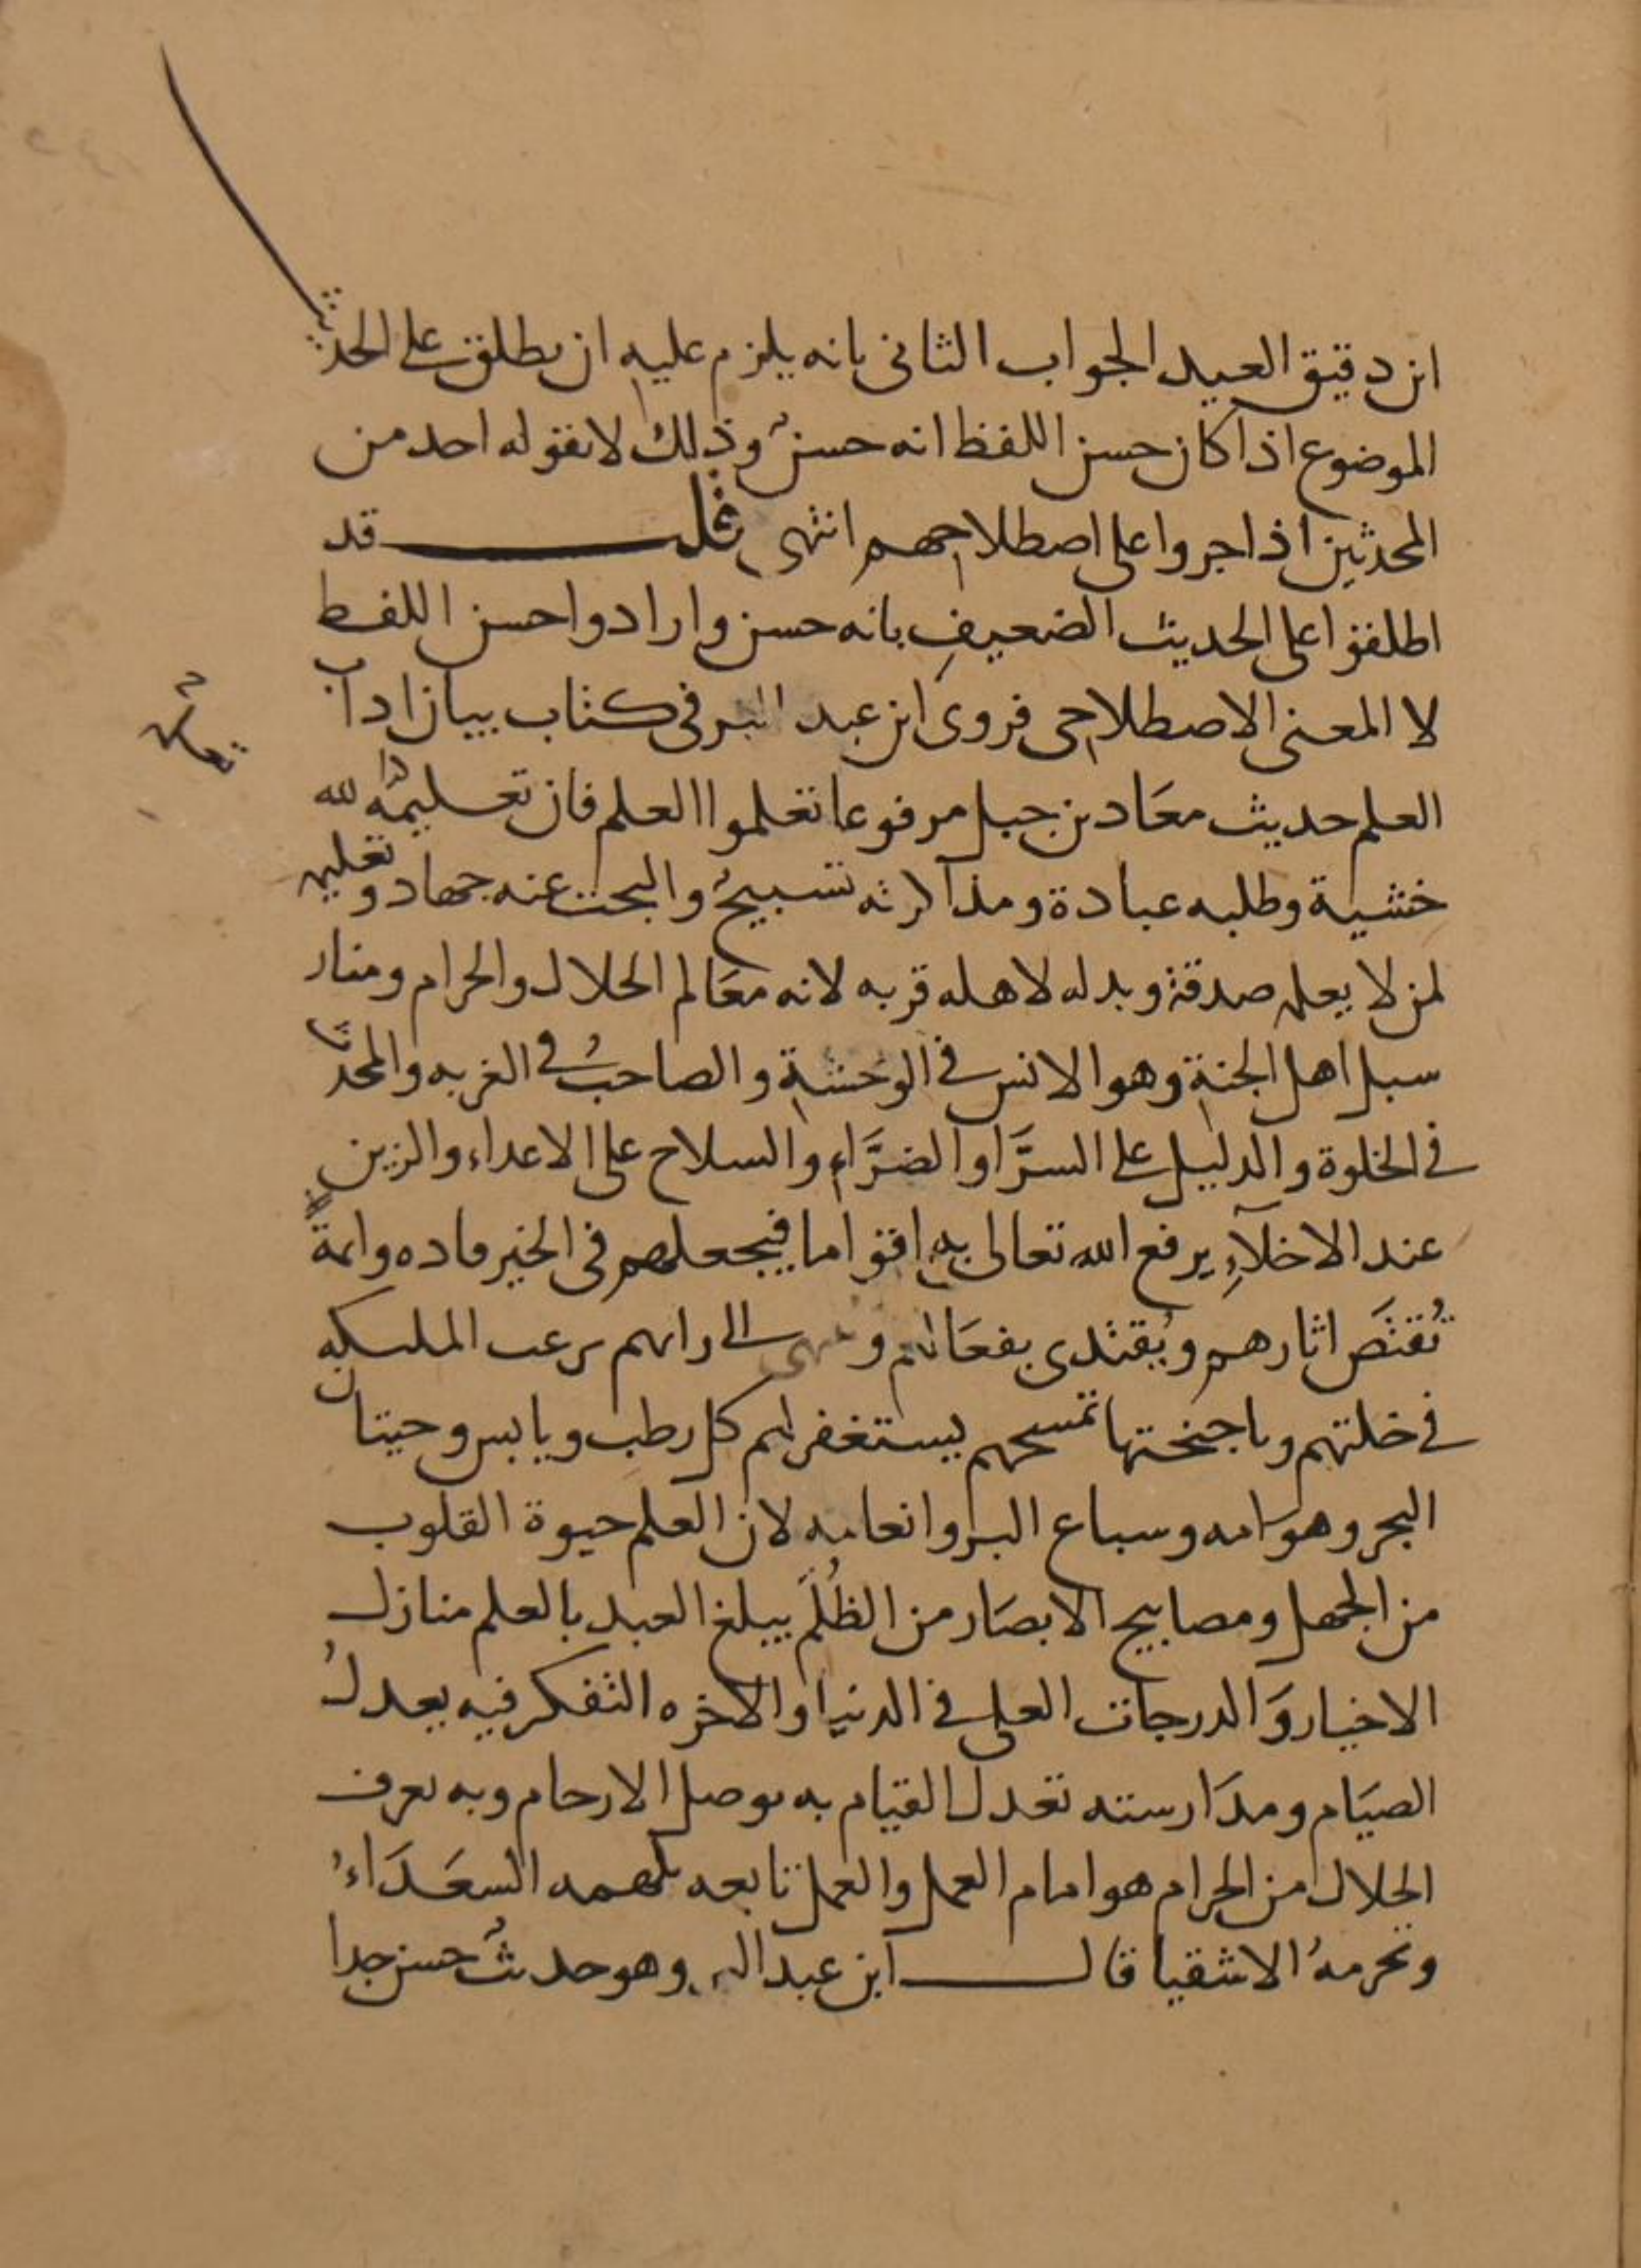 ابن دقيق العيد الجواب الثانى بانه يلزم عليه ان يطلق على الحديث
الموضوع اذا كان حسن اللفظ انه حسنٌ وذلك لا يقوله احد من
المحدثين اذا جروا على اصطلاحهم انتهى قلت قد
اطلقوا على الحديث الضعيف بانه حسن وارادوا حسن اللفظ
لا المعنى الاصطلاحى فروى ابن عبد البر فى كتاب بيان اداب
العلم حديث معَاد بن جبل مرفوعا تعلموا العلم فان تعليمه لله
خشية وطلبه عبادة ومذاكرته تسبيحٌ والبحث عنه جهاد وتعليمه
لمن لا يعلمه صدقة وبدله لاهله قربه لانه معَالم الحلال والحرام ومنار
سبل اهل الجنة وهو الانس فى الوحشة والصاحبُ فى الغربه والمحدث
فى الخلوة والدليل على السرَّا والضرَّاءِ والسلاح على الاعداء والزين
عند الاخلآءِ يرفع الله تعالى به اقواما فيجعلهم فى الخير قاده وائمةً
تُقتصَ اثارهم ويُقتدى بفعَالهم وينتهى الى رايهم ترغب المليكه
فى خلتهم وباجنحتها تمسحهم يستغفر لهم كل رطب ويابس وحيتان
البحر وهوامه وسباع البر وانعامه لان العلم حيوة القلوب
من الجهل ومصابيح الابصَار من الظُلَم يبلغ العبد بالعلم منازل
الاخيار وَالدرجات العلى فى الدنيا والاخره التفكر فيه يعدلُ
الصيَام ومدَارسته تعدل القيام به توصل الارحام وبه يعرف
الحلال من الحرام هو امام العمل والعمل تابعه يلهمه السعَدَاءُ
ويحرمهُ الاشقيا قال ابن عبد البر وهو حديثٌ حسن جدا